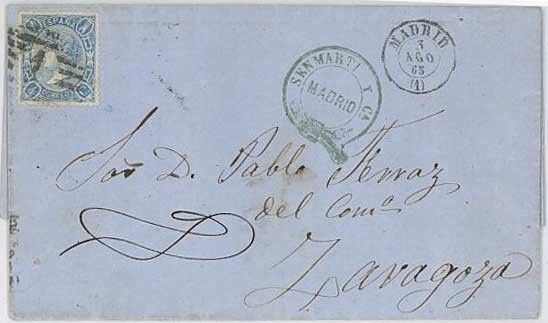 ESPAÑA
CORREOS
SENMARTI Y CA
MADRID
MADRID
3
AGO
65
(1)
Sor D. Pablo Ferraz
del Como
Zaragoza